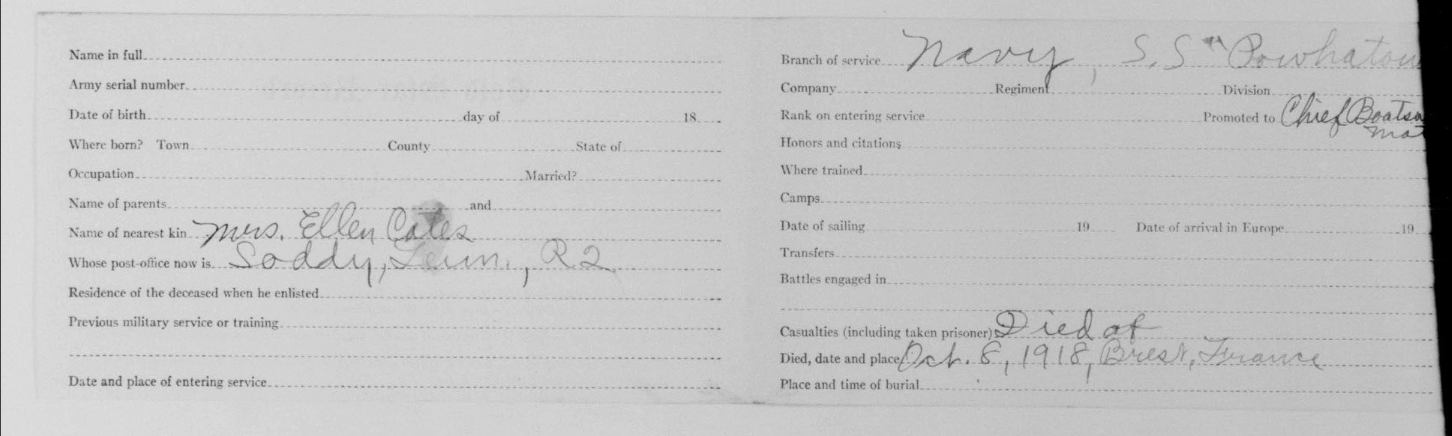 Name in full
Army serial number
Date of birth day of 18
Where born? Town County State of
Occupation Married?
Name of parents and
Name of nearest kin Mrs. Ellen Cates
Whose post-office now is Soddy, Tenn., R2
Residence of the deceased when he enlisted
Previous military service or training
Date and place of entering service
Branch of service Navy, S.S. "Powhatan
Company Regiment Division
Rank on entering service Promoted to Chief Boatsw
Mat
Honors and citations
Where trained
Camps
Date of sailing 19 Date of arrival in Europe 19
Transfers
Battles engaged in
Casualties (including taken prisoner) Died of
Died, date and place Oct. 8, 1918, Brest, France
Place and time of burial